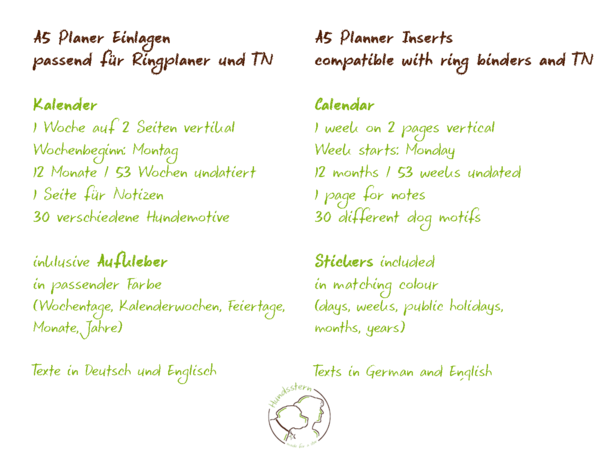 A5 Planer Einlagen
passend für Ringplaner und TN
Kalender
1 Woche auf 2 Seiten vertikal
Wochenbeginn: Montag
12 Monate / 53 Wochen undatiert
1 Seite für Notizen
30 verschiedene Hundemotive
inklusive Aufkleber
in passender Farbe
(Wochentage, Kalenderwochen, Feiertage,
Monate, Jahre)
Texte in Deutsch und Englisch
A5 Planner Inserts
compatible with ring binders and TN
Calendar
1 week on 2 pages vertical
Week starts: Monday
12 months / 53 weeks undated
1 page for notes
30 different dog motifs
Stickers included
in matching colour
(days, weeks, public holidays,
months, years)
Texts in German and English
Hundsstern